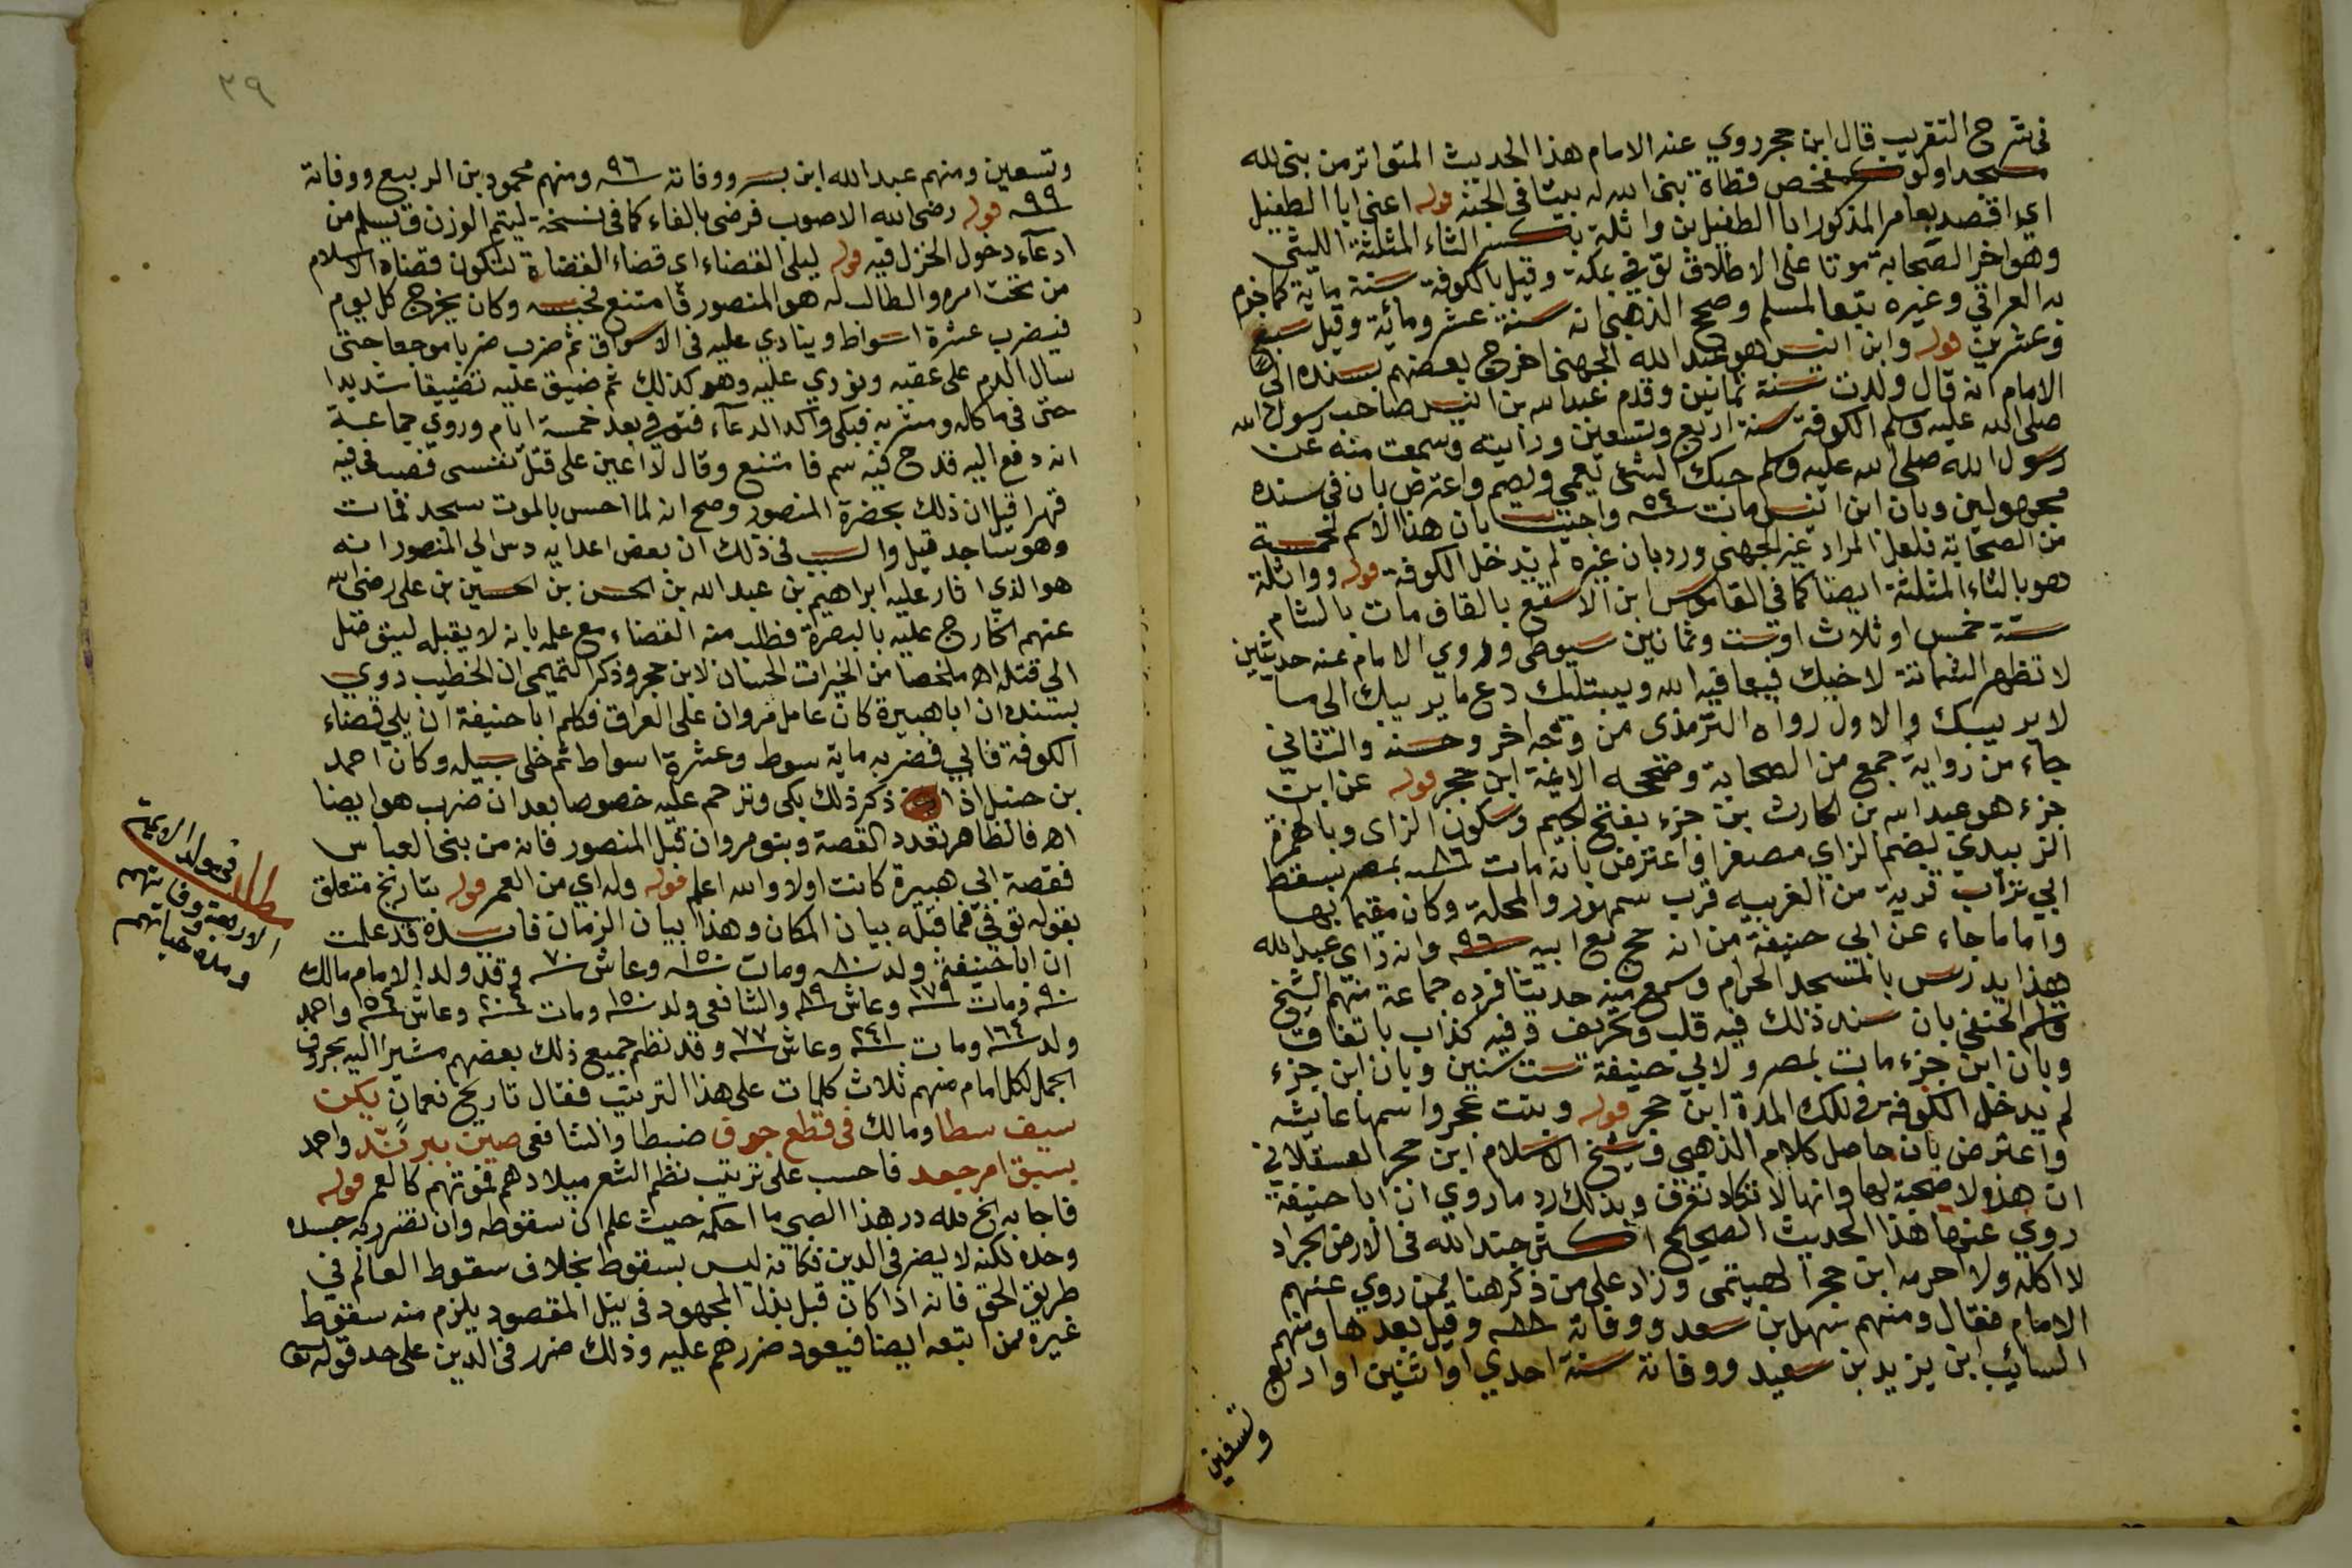 في شرح التقريب قال ابن حجر روي عنه الامام هذا الحديث المتواتر من بنى لله
مسجدا ولو كمفحص قطاة بنى الله له بيتا في الجنة قوله اعني ابا الطفيل
اي اقصد بعامر المذكور ابا الطفيل بن واثلة بكسر الثاء المثلثة الليثي
وهو اخر الصحابة موتا على الاطلاق توفي بمكة وقيل بالكوفة سنة ماية كما جزم
به العراقي وغيره تبعا لمسلم وصحح الذهبي انه سنة عشر ومائة وقيل سبع
وعشرين قوله وابن انيس هو عبد الله الجهني اخرج بعضهم بسنده الى
الامام انه قال ولدت سنة ثمانين وقدم عبد الله بن انيس صاحب رسول الله
صلى الله عليه وسلم الكوفة سنة اربع وتسعين ورايته وسمعت منه عن
رسول الله صلى الله عليه وسلم حبك الشئ يعمي ويصم واعترض بان في سنده
مجهولين وبان ابن انيس مات سنة ٥٤ واجيب بان هذا الاسم لخمسة
من الصحابة فلعل المراد غير الجهني ورد بان غيره لم يدخل الكوفة قوله وواثلة
هو بالثاء المثلثة ايضا كما في القاموس ابن الاسقع بالقاف مات بالشام
سنة خمس او ثلاث او ست وثمانين سيوطي وروي الامام عنه حديثين
لا تظهر الشماتة لاخيك فيعافيه الله ويبتليك دع ما يريبك الى ما
لا يريبك والاول رواه الترمذي من وجه اخر وحسنه والثاني
جاء من رواية جمع من الصحابة وصححه الائمة ابن حجر قوله عن ابن
جزء هو عبد الله بن الحارث بن جزء بفتح الجيم وسكون الزاى وبالهمزة
الزبيدي بضم الزاي مصغرا واعترض بانه مات سنة ٨٦ بمصر بسقط
ابي تراب قرية من الغربيه قرب سمهنور والمحلة وكان مقيما بها
واما ما جاء عن ابي حنيفة من انه حج مع ابيه سنة ٩٦ وانه راي عبد الله
هذا يدرس بالمسجد الحرام وسمع منه حديثا فرده جماعة منهم الشيخ
قاسم الحنفي بان سند ذلك فيه قلب وتحريف وفيه كذاب باتفاق
وبان ابن جزء مات بمصر ولابي حنيفة ست سنين وبان ابن جزء
لم يدخل الكوفة في تلك المدة ابن حجر قوله وبنت عجر واسمها عايشه
واعترض بان حاصل كلام الذهبي وشيخ الاسلام ابن حجر العسقلاني
ان هذه لا صحبة لها وانها لا تكاد تعرف وبذلك رد ما روي ان ابا حنيفة
روي عنها هذا الحديث الصحيح اكثر جند الله في الارض الجراد
لا اكله ولا احرمه ابن حجر الهيتمي وزاد على من ذكر هنا ممن روي عنهم
الامام فقال ومنهم سهل بن سعد ووفاته سنة ٨٨ وقيل بعدها ومنهم
السائب ابن يزيد بن سعيد ووفاته سنة احدي او اثنين او اربع
وتسعين
٣٩
وتسعين ومنهم عبد الله ابن بسر ووفاته سنة ٩٦ ومنهم محمود بن الربيع ووفاته
سنة ٩٩ قوله رضى الله الاصوب فرضى بالفاء كما في نسخة ليتم الوزن ويسلم من
ادعآء دخول الخزل فيه قوله ليلى القضاء اى قضاء القضاة لتكون قضاة الاسلام
من تحت امره والطالب له هو المنصور فامتنع فحبسه وكان يخرج كل يوم
فيضرب عشرة اسواط وينادي عليه في الاسواق ثم ضرب ضربا موجعا حتى
سال الدم على عقبه ونودي عليه وهو كذلك ثم ضيق عليه تضييقا شديدا
حتى في ماكله ومشربه فبكى واكد الدعآء فتوفى بعد خمسة ايام وروي جماعة
انه دفع اليه قدح فيه سم فامتنع وقال لا اعين على قتل نفسى فصب في فيه
قهرا قيل ان ذلك بحضرة المنصور وصح انه لما احس بالموت سجد فمات
وهو ساجد قيل والسبب في ذلك ان بعض اعدايه دس الي المنصور انه
هو الذي اثار عليه ابراهيم بن عبد الله بن الحسن بن الحسين بن على رضى الله
عنهم الخارج عليه بالبصرة فطلب منه القضاء مع علمه بانه لا يقبله ليتوصل
الى قتله اه ملخصا من الخيرات الحسان لابن حجر وذكر التميمى ان الخطيب روي
بسنده ان ابا هبيرة كان عامل مروان على العراق فكلم ابا حنيفة ان يلي قضاء
الكوفة فابي فضربه ماية سوط وعشرة اسواط ثم خلى سبيله وكان احمد
بن حنبل اذا ذكر ذلك بكى وترحم عليه خصوصا بعد ان ضرب هو ايضا
اه فالظاهر تعدد القصة وبنو مروان قبل المنصور فانه من بني العباس
فقصة ابي هبيرة كانت اولا والله اعلم قوله وله اي من العمر قوله بتاريخ متعلق
بقوله توفي فما قبله بيان المكان وهذا بيان الزمان فائدة قد علمت
ان ابا حنيفة ولد سنة ٨٠ ومات سنة ١٥٠ وعاش سنة ٧٠ وقد ولد الامام مالك
سنة ٩٠ ومات سنة ١٧٩ وعاش سنة ٨٩ والشافعى ولد سنة ١٥٠ ومات سنة ٢٠٤ وعاش سنة ٥٤ واحمد
ولد سنة ١٦٤ ومات سنة ٢٤١ وعاش سنة ٧٧ وقد نظم جميع ذلك بعضهم مشيرا اليه بحروف
الجمل لكل امام منهم ثلاث كلمات على هذا الترتيب فقال تاريخ نعمان يكن
سيف سطا ومالك في قطع جوف ضبطا والشافعى صين ببر ند واحمد
بسبق امر جعد فاحسب على ترتيب نظم الشعر ميلادهم فموتهم كالعمر قوله
فاجابه الخ لله در هذا الصبي ما احكمه حيث علم ان سقوطه وان تضرر به جسده
وحده لكنه لا يضر في الدين فكانه ليس بسقوط بخلاف سقوط العالم في
طريق الحق فانه اذا كان قبل بذل المجهود في نيل المقصود يلزم منه سقوط
غيره ممن اتبعه ايضا فيعود ضررهم عليه وذلك ضرر في الدين على حد قوله
مطلب في مولد الايمة
الاربعة ووفاتهم
ومدة حياتهم